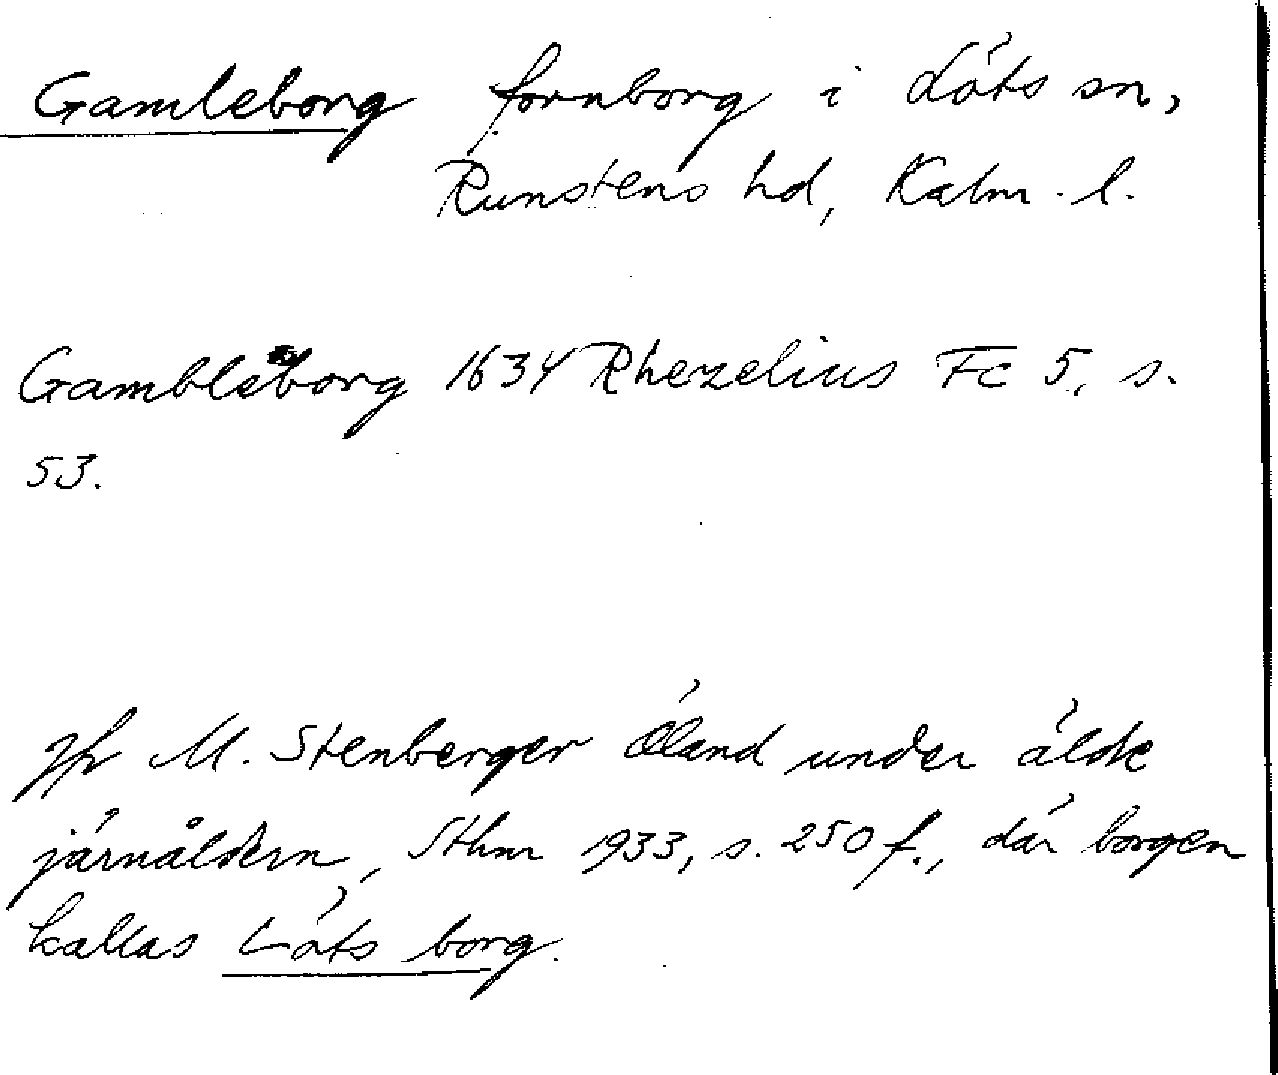 Gamleborg fornborg i Löts sn,
Runstens hd, Kalm. l.
Gambleborg 1634 Rhezelius Fc 5, s.
53.
Jfr M. Stenberger Öland under äldre
järnåldern, Sthm 1933, s. 250 f., där borgen
kallas Löts borg.